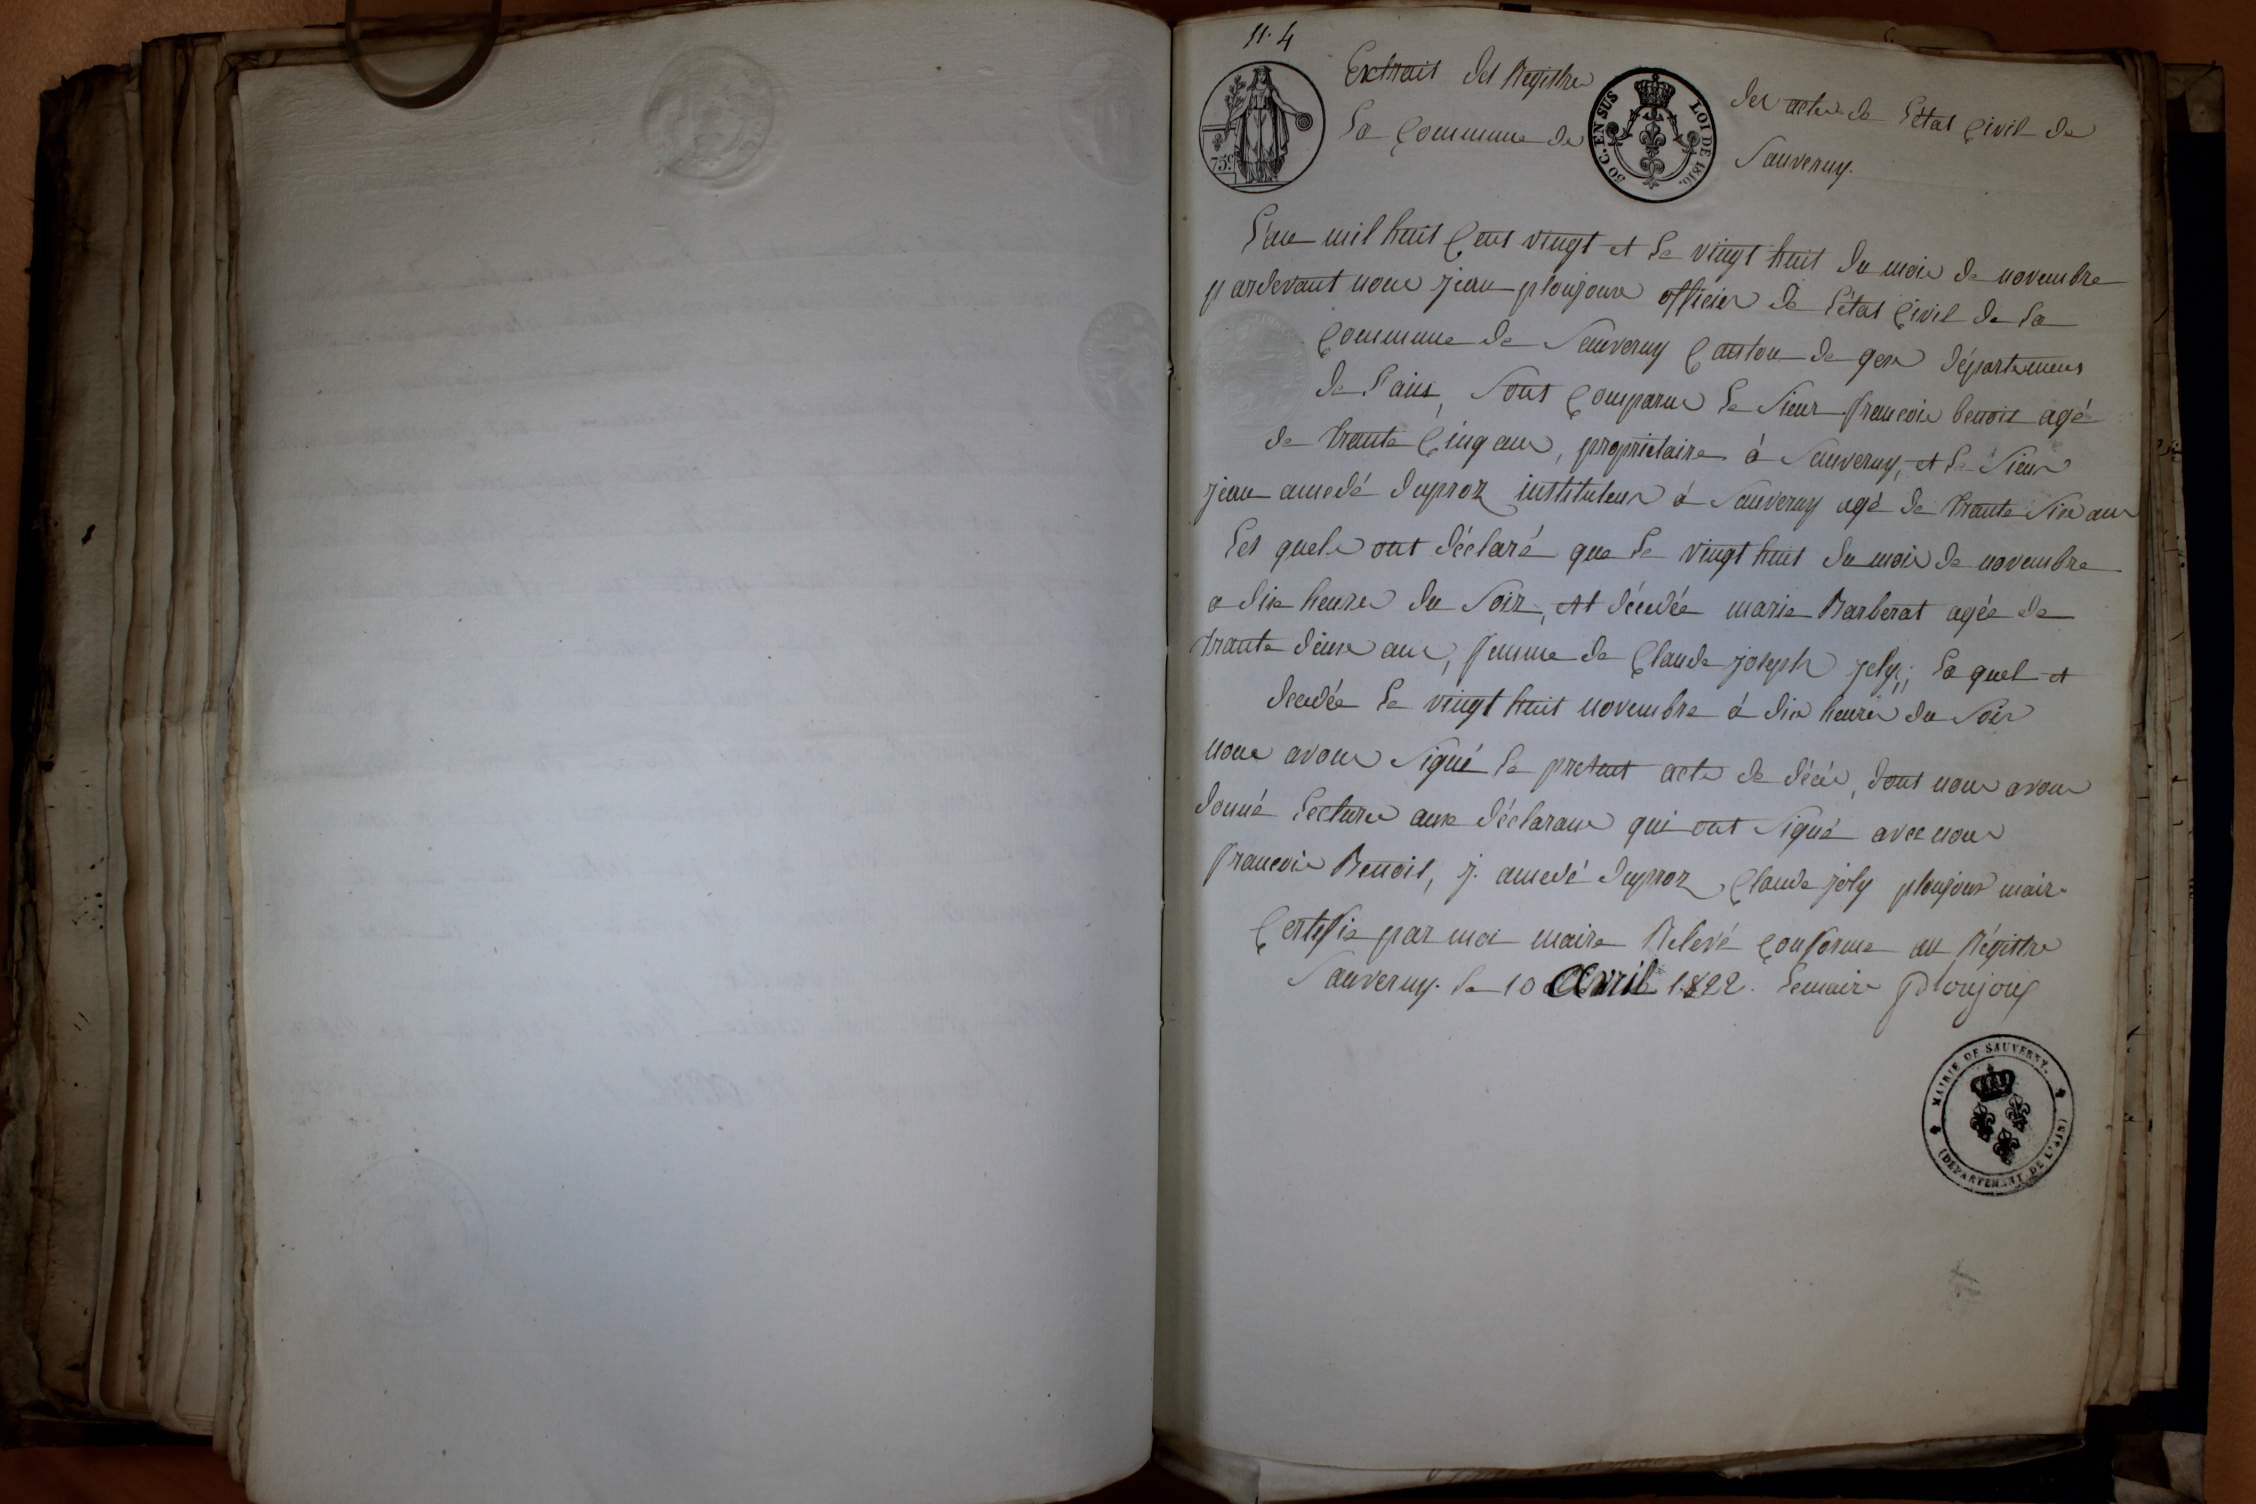 n. 4
Extrait des Registre des actes de l'état Civil de
la Commune de Sauverny.
75c
50 C. EN SUS LOI DE 1816.
L'an mil huit Cent vingt et le vingt huit du mois de novembre
pardevant nous jean ploujoux officier de l'état Civil de la
Commune de Sauverny Canton de gex département
de l'ain, Sont Comparus le Sieur francois benoit agé
de trante Cinq ans, propriétaire à Sauverny, et le Sieur
jean amedé duproz instituteur à Sauverny agé de trante Six ans
les quels ont déclaré que le vingt huit du mois de novembre
a dix heures du Soir, est décedée marie Barberat agée de
trante deux ans, femme de Claude joseph joly; la quel et
decedée le vingt huit novembre à dix heures du Soir
nous avons Signé le present acte de décès, dont nous avons
donné lecture aux déclarans qui ont Signé avec nous
francois Benoit, j. amedé duproz Claude joly ploujoux maire
Certifie par moi maire Relevé Conforme au Régistre
Sauverny. le 10 Avril 1822. le maire Ploujoux
MAIRIE DE SAUVERNY.
(DÉPARTEMENT DE L'AIN)